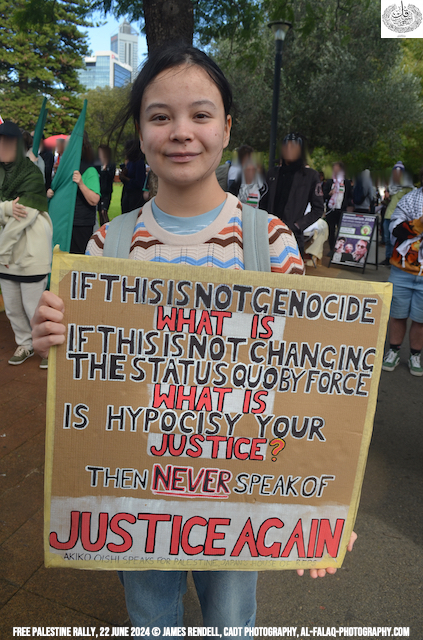 IF THIS IS NOT GENOCIDE
WHAT IS
IF THIS IS NOT CHANGING
THE STATUS QUO BY FORCE
WHAT IS
IS HYPOCISY YOUR
JUSTICE?
THEN NEVER SPEAK OF
JUSTICE AGAIN
AKIKO OISHI SPEAKS FOR PALESTINE, JAPAN'S HOUSE OF
FREE PALESTINE RALLY, 22 JUNE 2024 © JAMES RENDELL, CADT PHOTOGRAPHY, AL-FALAQ-PHOTOGRAPHY.COM